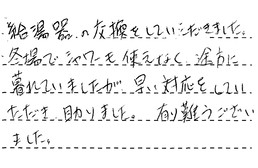 給湯器の交換をしていただきました。
冬場でシャワーも使えなく途方に
暮れていましたが早い対応をしてい
ただき助かりました。有り難うござい
ました。